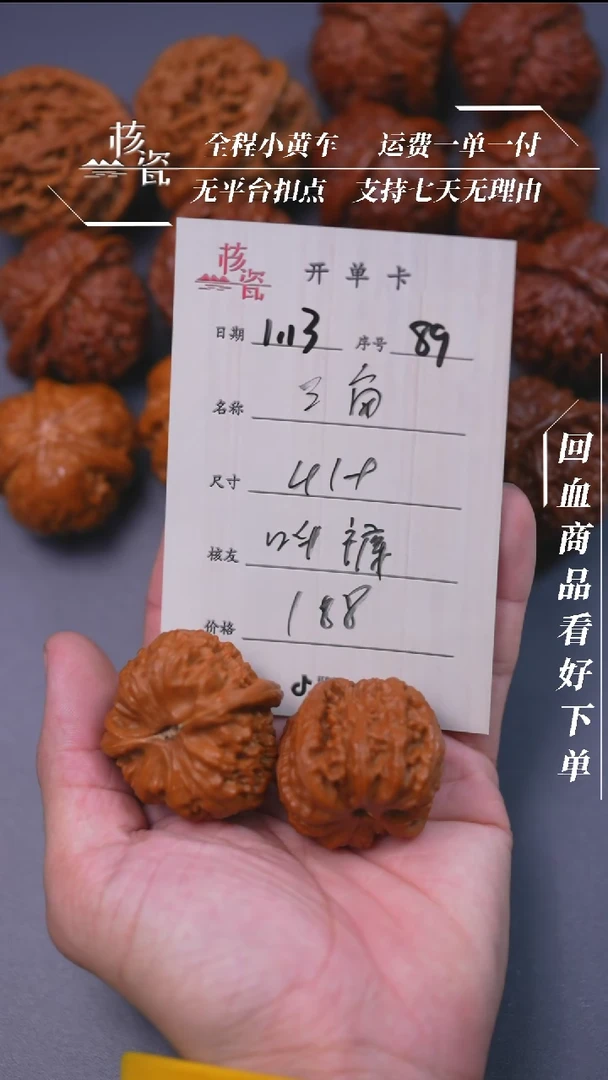 核瓷
全程小黄车 运费一单一付
无平台扣点 支持七天无理由
核瓷
开单卡
日期 1.13 序号 89
名称
尺寸 41+
核友
价格 188
回血商品看好下单